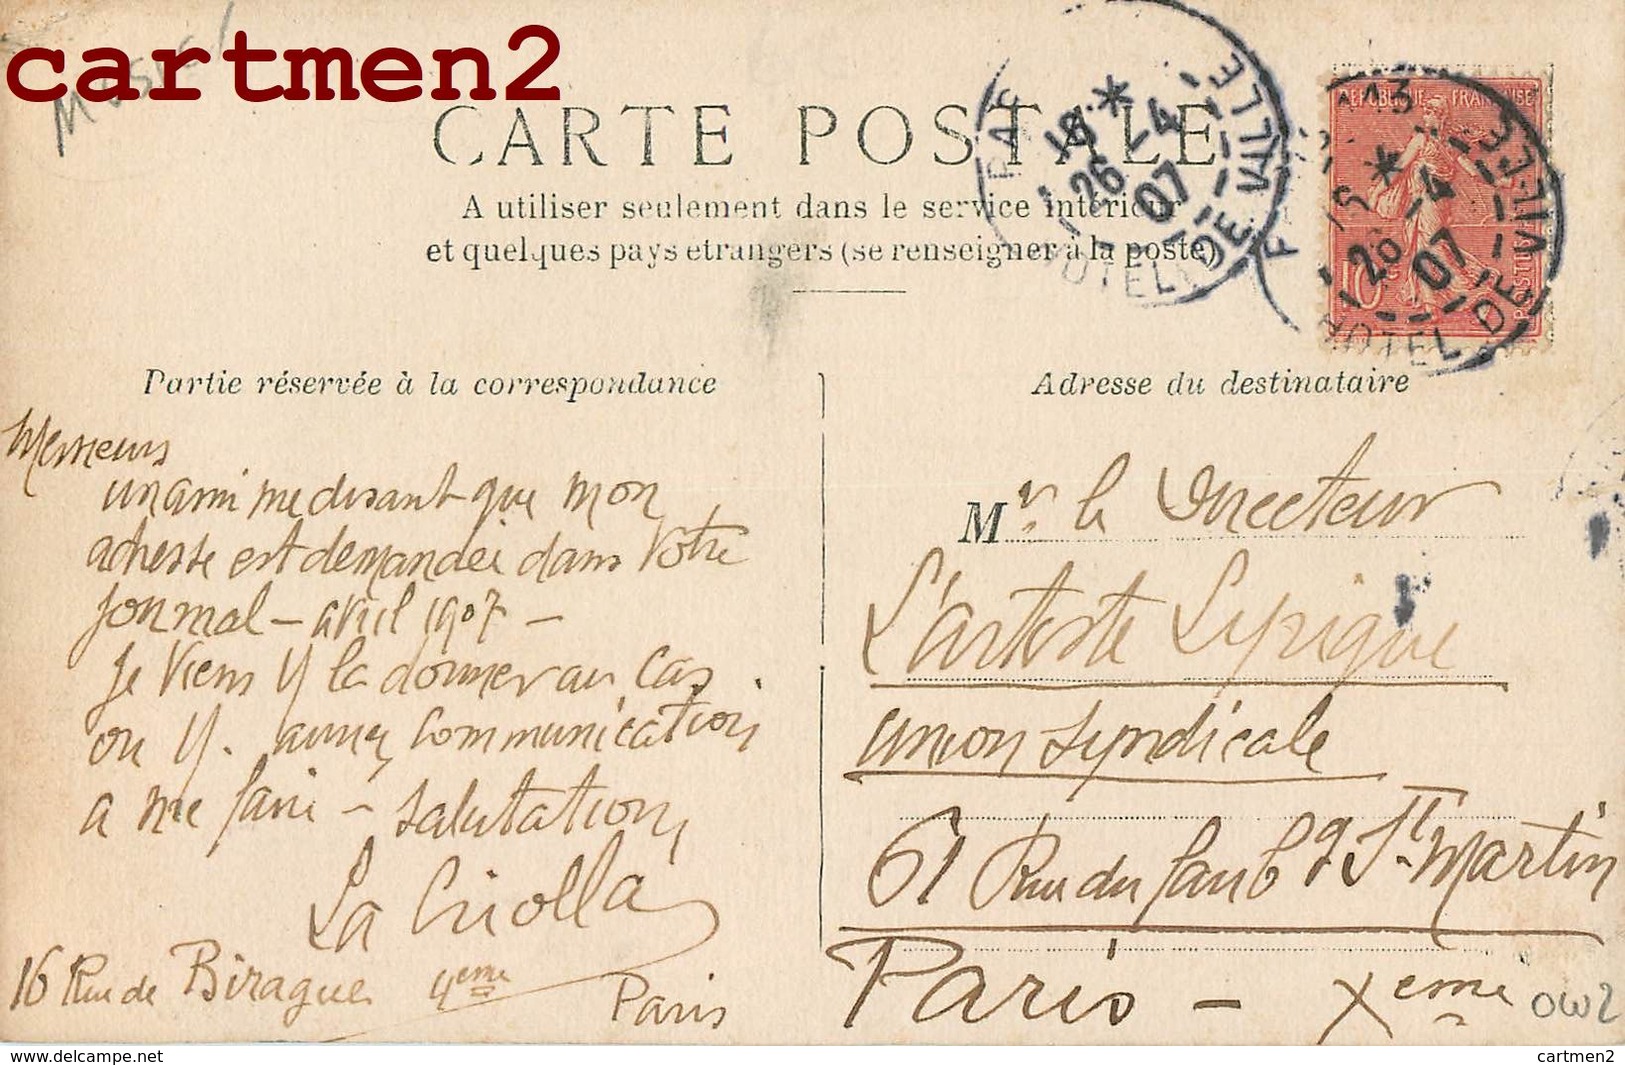 cartmen2
CARTE POSTALE
A utiliser seulement dans le service intérieur
et quelques pays étrangers (se renseigner à la poste)
REPUBLIQUE FRANÇAISE
POSTES
10c
18 * 26 - 4 07
HOTEL DE VILLE
15 * 26 - 4 07
HOTEL DE VILLE
Partie réservée à la correspondance
Messieurs
un ami me disant que mon
adresse est demandée dans votre
journal – avril 1907 –
je viens y la donner au cas
ou y. auriez communication
a me faire – salutation,
La Criolla
16 Rue de Birague 4eme Paris
Adresse du destinataire
Mr. le Directeur
L'artiste Lyrique
union syndicale
61 Rue du faubg St. Martin
Paris – Xeme
0w2
cartmen2
http://www.delcampe.net